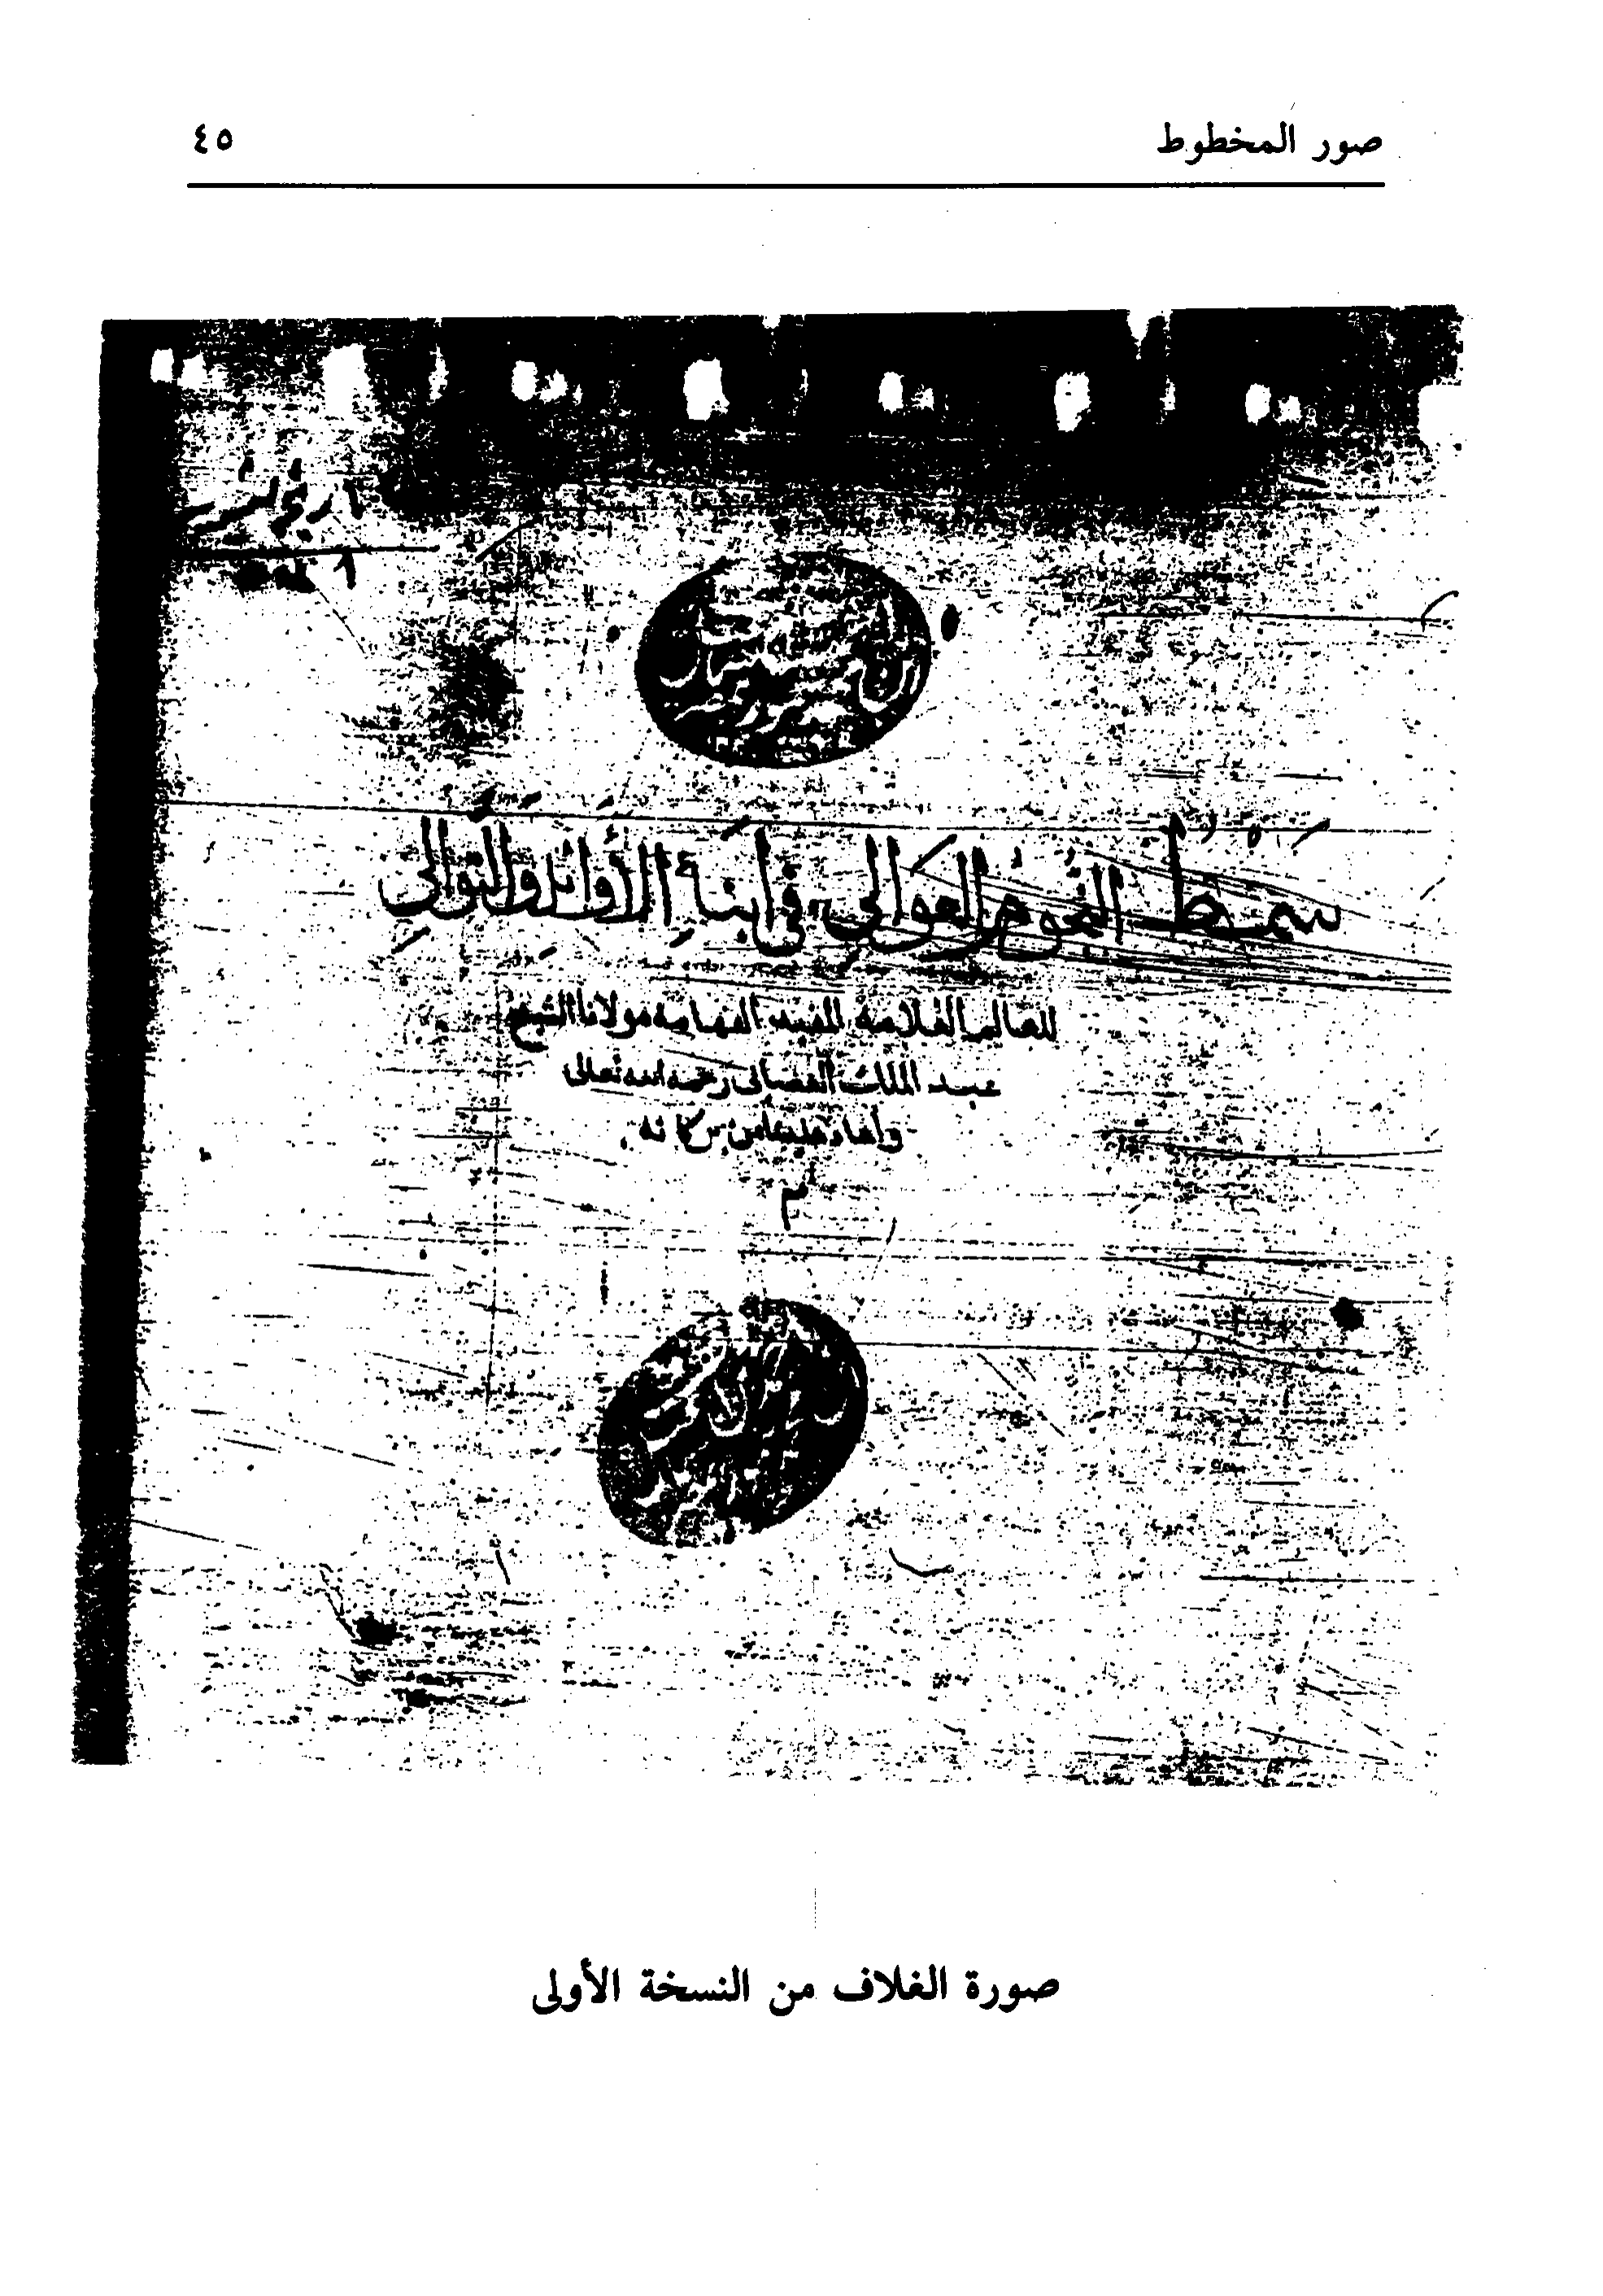 صور المخطوط
٤٥
سمط النجوم العوالي في أبناء الأوائل والتوالي
للعالم العلامة الفهامة مولانا الشيخ
عبد الملك العصامي رحمه الله تعالى
وأعاد علينا من بركاته
صورة الغلاف من النسخة الأولى